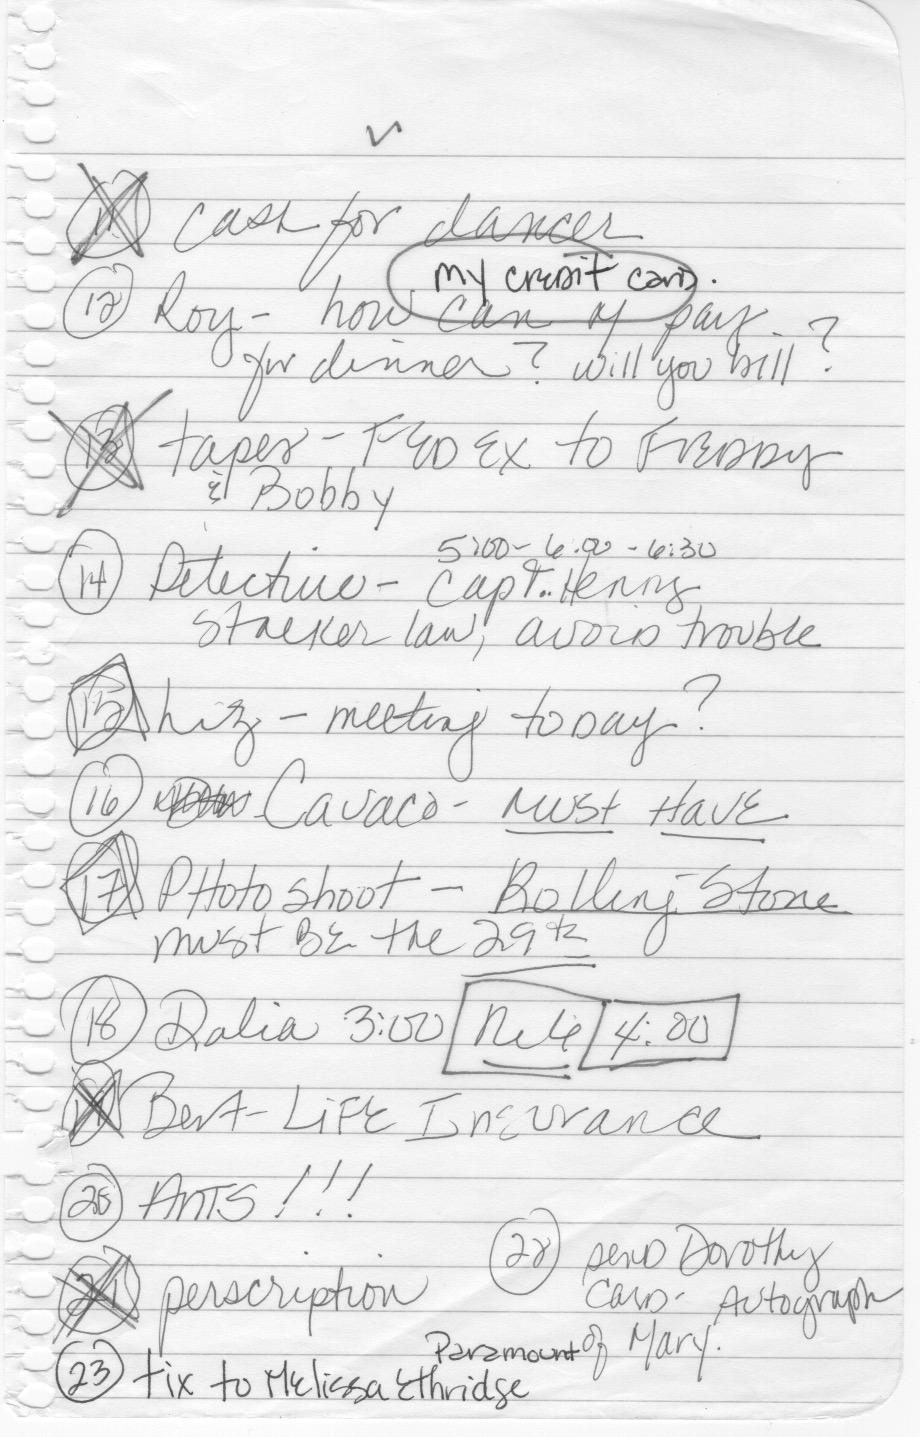 11 cash for dancer
my credit card.
12 Roy - how can I pay
for dinner? will you bill?
13 tapes - FED EX to FREDDY
& Bobby
5:00 - 6:00 - 6:30
14 Detective - Capt. Henry
Stalker law, avoid trouble
15 Liz - meeting today?
16 Cavaco - MUST HAVE
17 PHoto shoot - Rolling Stone
must BE the 29th
18 Dalia 3:00 4:00
19 Bert - LIFE Insurance
20 ANTS!!!
21 perscription
22 send Dorothy
Card - Autograph
of Mary.
Paramount
23 tix to Melissa Ethridge